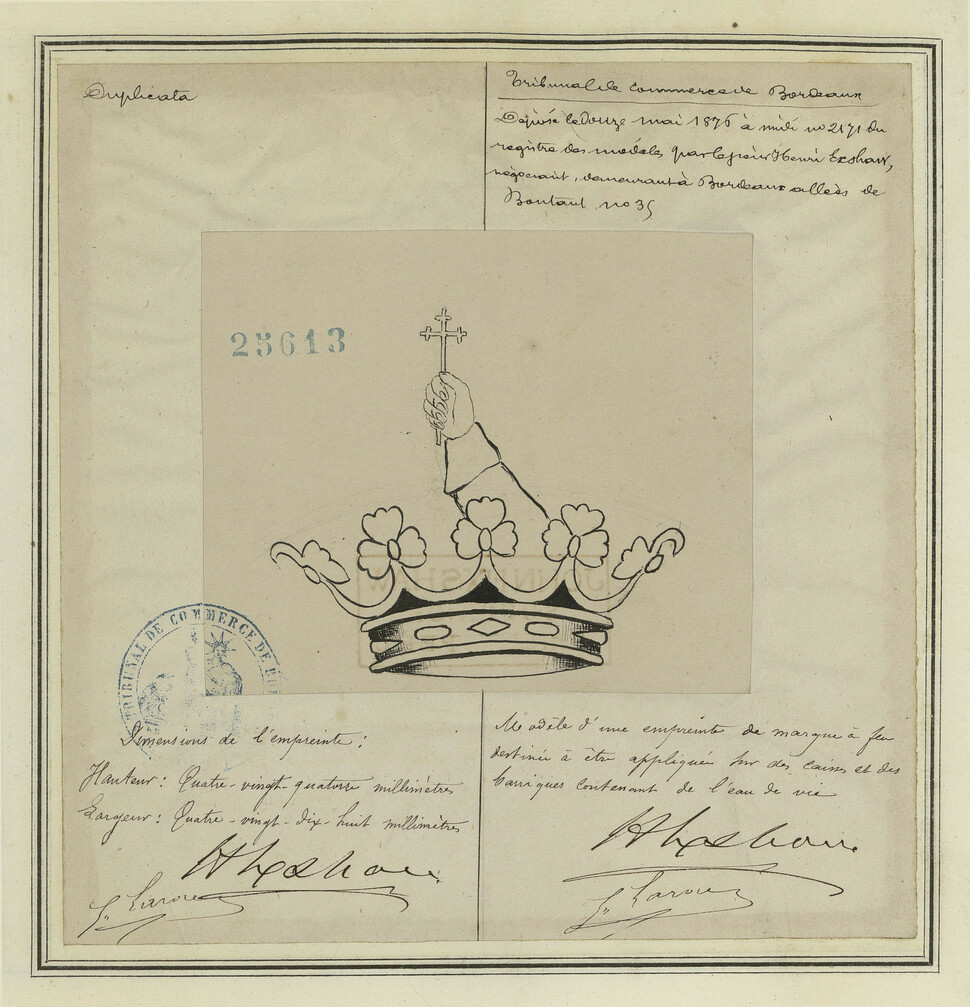 Duplicata
Tribunal de commerce de Bordeaux
Déposé le Douze mai 1876 à midi no 2171 du
registre des modèles par le sieur Henri Exshaw,
négociant, demeurant à Bordeaux allées de
Boutaut no 35
25613
TRIBUNAL DE COMMERCE DE
Dimensions de l'empreinte :
Hauteur : Quatre-vingt-quatorze millimètres
Largeur : Quatre-vingt-dix-huit millimètres
H Exshaw
Modèle d'une empreinte de marque à feu
destinée à être appliquée sur des caisses et des
barriques contenant de l'eau de vie
H Exshaw